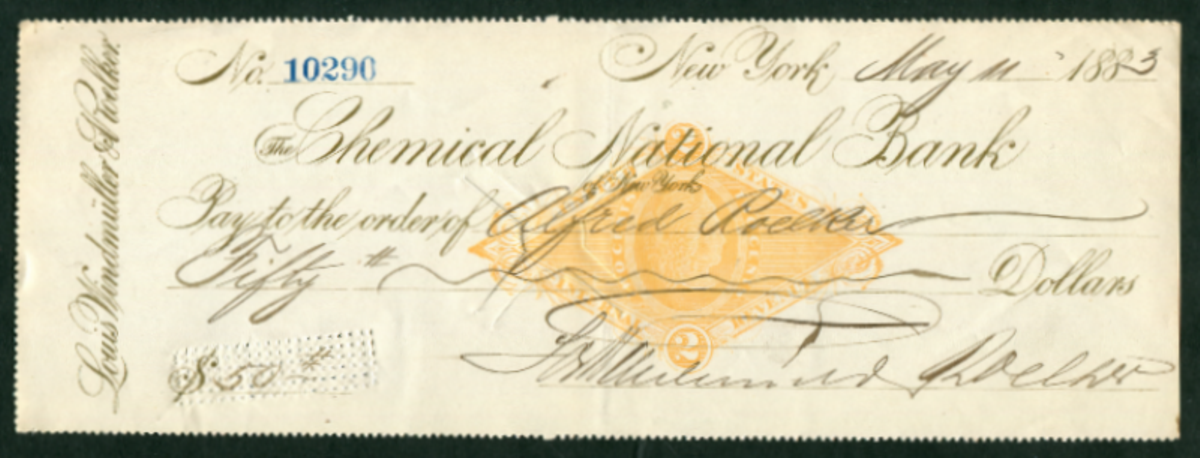 No. 10290
New York, May 11 1883
The Chemical National Bank
of New York
Pay to the order of Alfred Roelker
Fifty Dollars
$ 50
Roelker
Louis Windmüller & Roelker.
2
2